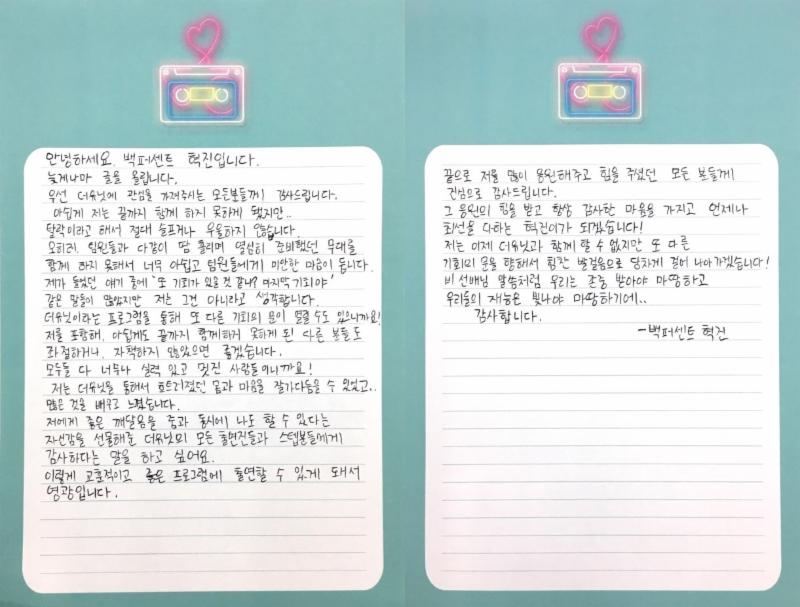 안녕하세요. 백퍼센트 혁진입니다.
늦게나마 글을 올립니다.
우선 더유닛에 관심을 가져주시는 모든분들께 감사드립니다.
아쉽게 저는 끝까지 함께 하지 못하게 됐지만..
탈락이라고 해서 절대 슬프거나 우울하지 않습니다.
오히려, 팀원들과 다같이 땀 흘리며 열심히 준비했던 무대를
함께 하지 못해서 너무 아쉽고 팀원들에게 미안한 마음이 듭니다.
제가 들었던 얘기 중에 '또 기회가 있을 것 같냐? 마지막 기회야'
같은 말들이 많았지만 저는 그건 아니라고 생각합니다.
더유닛이라는 프로그램을 통해 또 다른 기회의 문이 열릴 수도 있으니까요!
저를 포함해, 아쉽게도 끝까지 함께하지 못하게 된 다른 분들도
좌절하거나, 자책하지 않았으면 좋겠습니다.
모두들 다 너무나 실력 있고 멋진 사람들이니까요!
저는 더유닛을 통해서 흐트러졌던 몸과 마음을 잘가다듬을 수 있었고..
많은 것을 배우고 느꼈습니다.
저에게 좋은 깨달음을 줌과 동시에 나도 할 수 있다는
자신감을 선물해준 더유닛의 모든 출연진들과 스텝분들에게
감사하다는 말을 하고 싶어요.
이렇게 교훈적이고 좋은 프로그램에 출연할 수 있게 돼서
영광입니다.
끝으로 저를 많이 응원해주고 힘을 주셨던 모든 분들께
진심으로 감사드립니다.
그 응원의 힘을 받고 항상 감사한 마음을 가지고 언제나
최선을 다하는 혁진이가 되겠습니다!
저는 이제 더유닛과 함께 할 수 없지만 또 다른
기회의 문을 향해서 힘찬 발걸음으로 당차게 걸어 나아가겠습니다!
비 선배님 말씀처럼 우리는 존중 받아야 마땅하고
우리들의 재능은 빛나야 마땅하기에..
감사합니다.
-백퍼센트 혁진